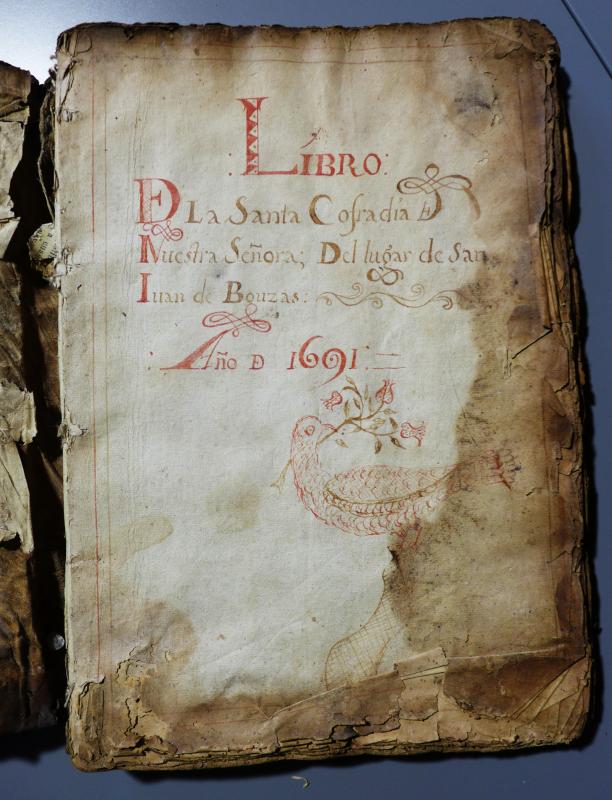 LIBRO:
D La Santa Cofradia D
Nuestra Señora; Del lugar de San
Iuan de Bouzas:
Año D 1691: